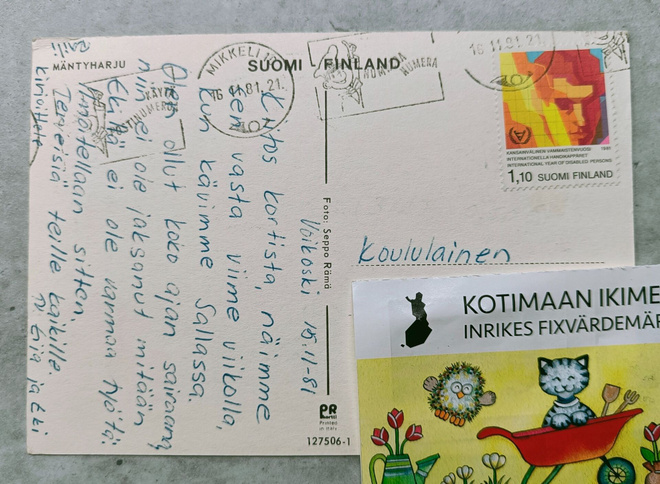 MÄNTYHARJU
SUOMI - FINLAND
MIKKELI
16.11.81.21
NUMERA
NUMERA
16 11.81.21.
KANSAINVÄLINEN VAMMAISTENVUOSI 1981
INTERNATIONELLA HANDIKAPPÅRET
INTERNATIONAL YEAR OF DISABLED PERSONS
1,10 SUOMI FINLAND
Voikoski 15.11-81
Kiitos kortista, näimme
sen vasta viime viikolla,
kun kävimme Sallassa.
Olen ollut koko ajan sairaana,
niin ei ole jaksanut mitään
Ekillä ei ole varmaa työtä
Terveisiä teille kaikille
Eija ja Eki
Kirjoittele
Foto: Seppo Rämä
Koululainen
PR
Printed
in Italy
127506-1
KOTIMAAN IKIME
INRIKES FIXVÄRDEMÄR